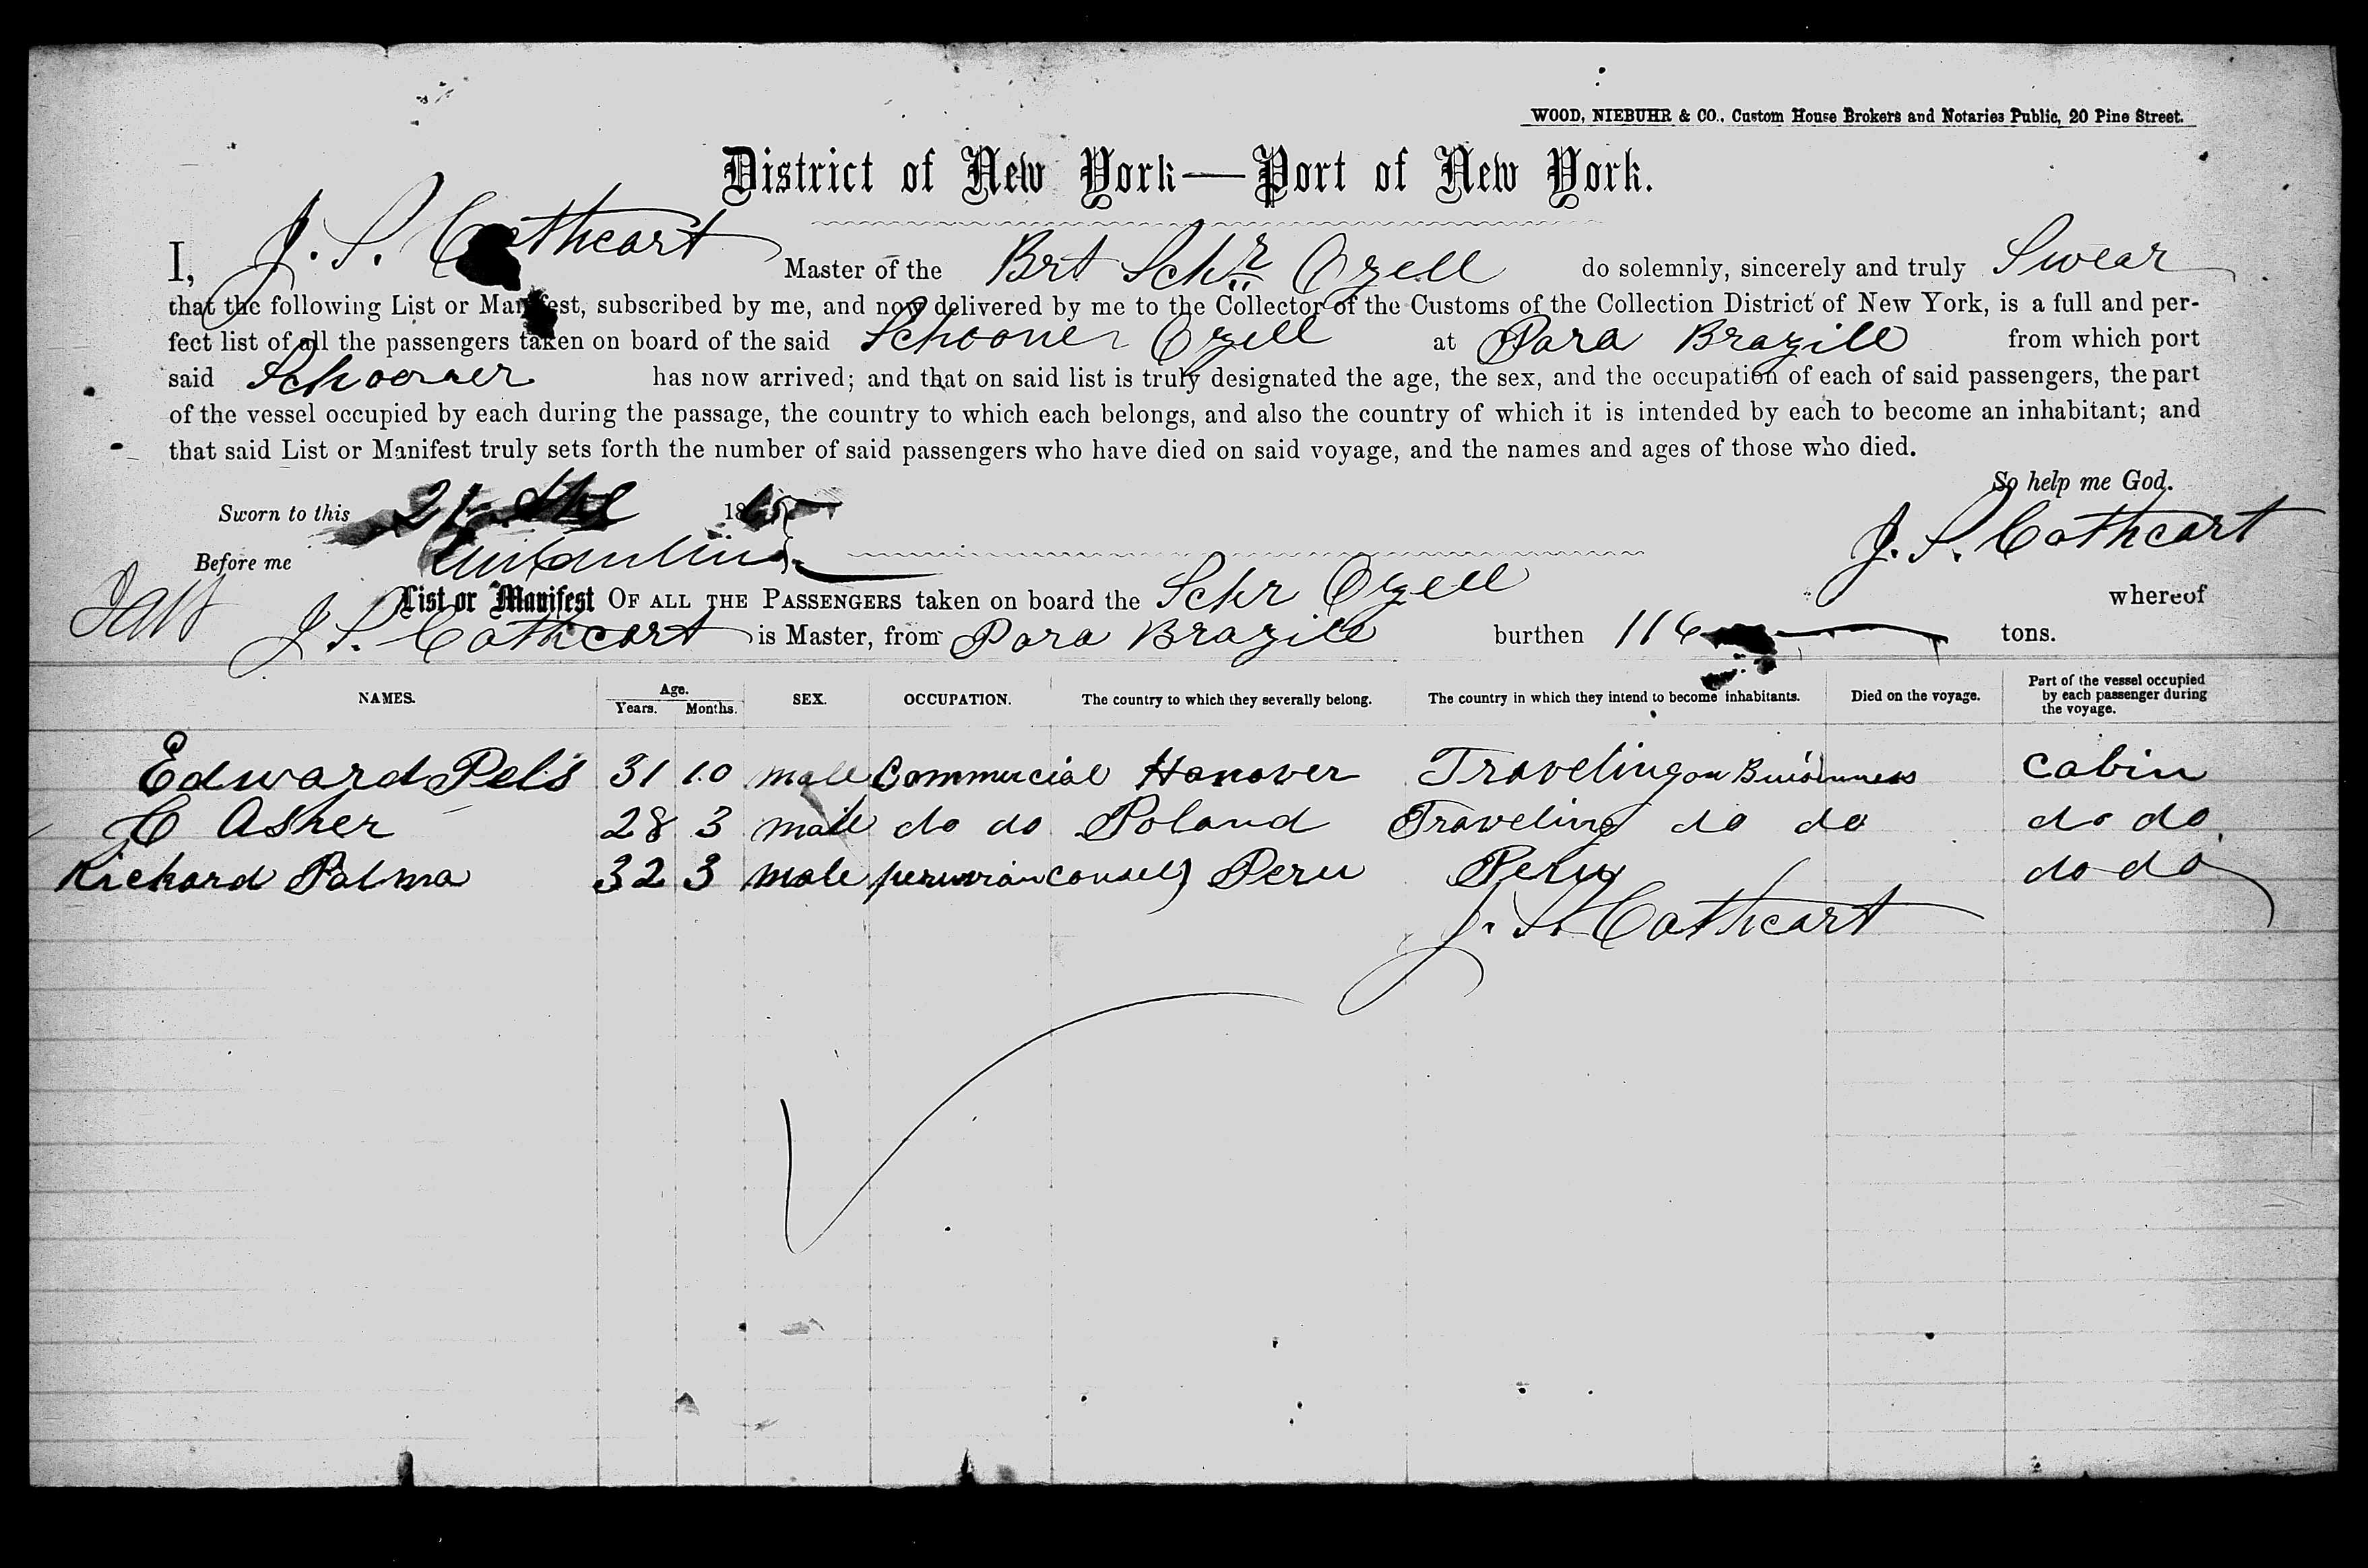 WOOD, NIEBUHR & CO., Custom House Brokers and Notaries Public, 20 Pine Street.
District of New York—Port of New York.
I, J. S. Cathcart Master of the Brt Schr Ozell do solemnly, sincerely and truly Swear
that the following List or Manifest, subscribed by me, and now delivered by me to the Collector of the Customs of the Collection District of New York, is a full and per-
fect list of all the passengers taken on board of the said Schooner Ozell at Para Brazill from which port
said Schooner has now arrived; and that on said list is truly designated the age, the sex, and the occupation of each of said passengers, the part
of the vessel occupied by each during the passage, the country to which each belongs, and also the country of which it is intended by each to become an inhabitant; and
that said List or Manifest truly sets forth the number of said passengers who have died on said voyage, and the names and ages of those who died.
So help me God.
Sworn to this 21 186
J. S. Cathcart
Before me
List or Manifest OF ALL THE PASSENGERS taken on board the Schr Ozell whereof
J S. Cathcart is Master, from Para Brazile burthen 116 tons.
NAMES. Age. Years. Months. SEX. OCCUPATION. The country to which they severally belong. The country in which they intend to become inhabitants. Died on the voyage. Part of the vessel occupied by each passenger during the voyage.
Edward Pels 31 10 male Commercial Hanover Traveling on Cabin
C Asher 28 3 male do do Poland Traveling do do do do
Richard Palma 32 3 male peruvian consul Peru Peru do do
J. S. Cathcart